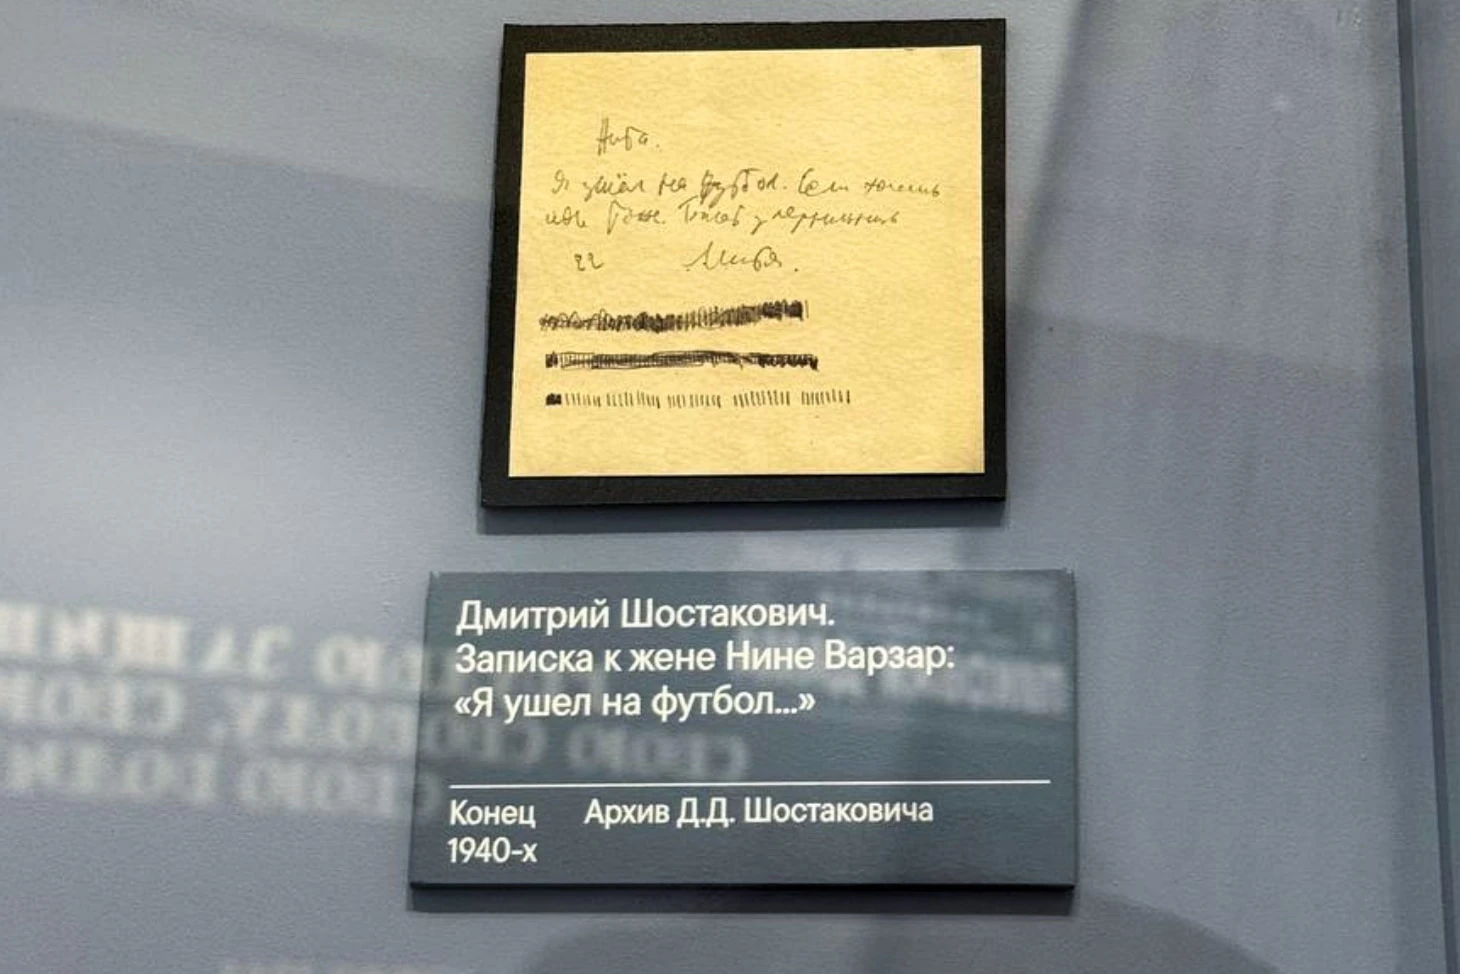 Нита.
Я ушёл на футбол. Если хочешь
иди тоже. Билет у
Митя.
Дмитрий Шостакович.
Записка к жене Нине Варзар:
«Я ушел на футбол...»
Конец Архив Д.Д. Шостаковича
1940-х